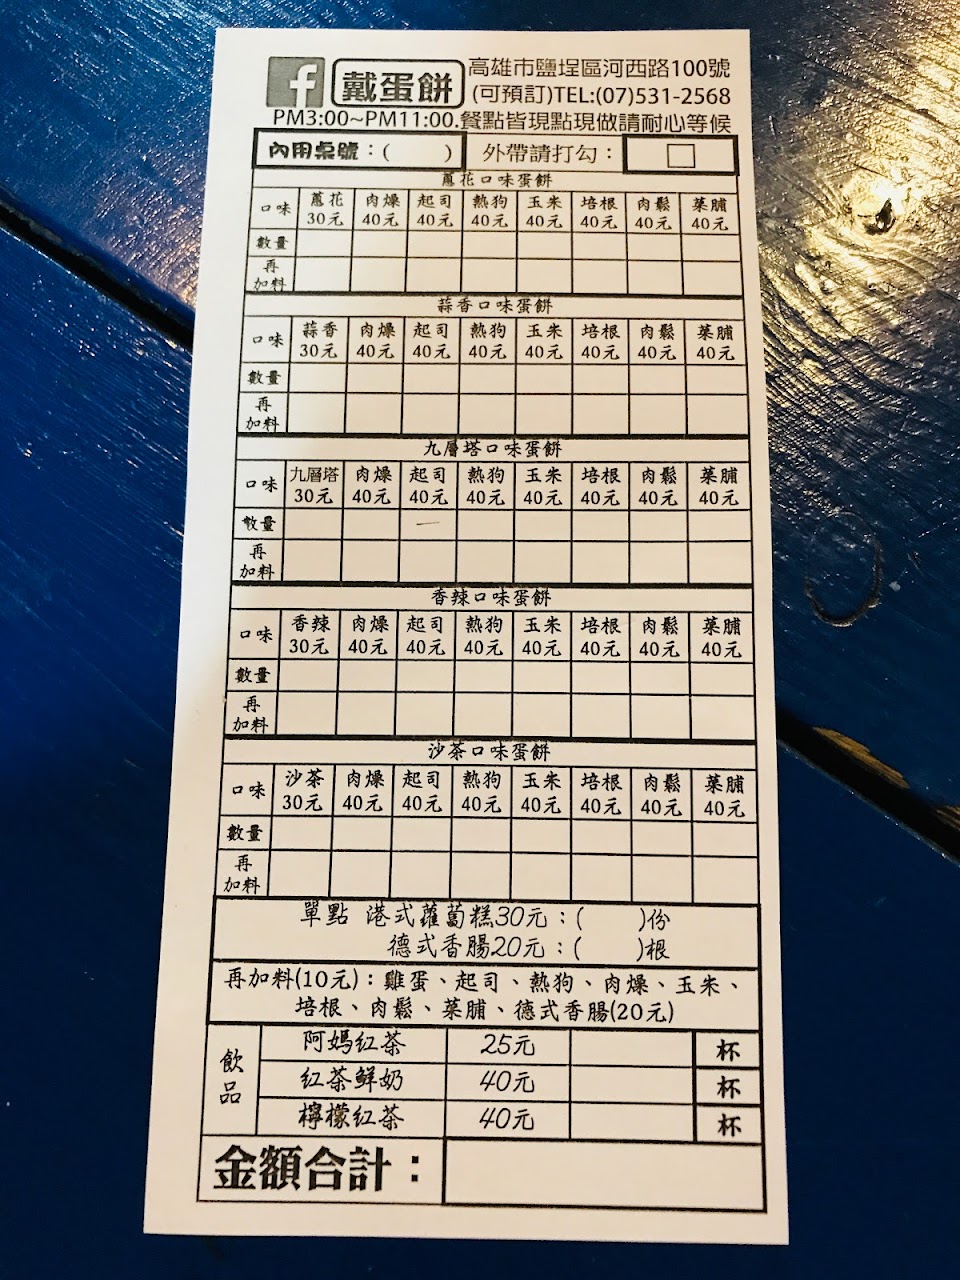 f 戴蛋餅 高雄市鹽埕區河西路100號
(可預訂)TEL:(07)531-2568
PM3:00~PM11:00.餐點皆現點現做請耐心等候
內用桌號：( ) 外帶請打勾： □
蔥花口味蛋餅
口味 蔥花 肉燥 起司 熱狗 玉米 培根 肉鬆 菜脯
30元 40元 40元 40元 40元 40元 40元 40元
數量
再
加料
蒜香口味蛋餅
口味 蒜香 肉燥 起司 熱狗 玉米 培根 肉鬆 菜脯
30元 40元 40元 40元 40元 40元 40元 40元
數量
再
加料
九層塔口味蛋餅
口味 九層塔 肉燥 起司 熱狗 玉米 培根 肉鬆 菜脯
30元 40元 40元 40元 40元 40元 40元 40元
數量 一
再
加料
香辣口味蛋餅
口味 香辣 肉燥 起司 熱狗 玉米 培根 肉鬆 菜脯
30元 40元 40元 40元 40元 40元 40元 40元
數量
再
加料
沙茶口味蛋餅
口味 沙茶 肉燥 起司 熱狗 玉米 培根 肉鬆 菜脯
30元 40元 40元 40元 40元 40元 40元 40元
數量
再
加料
單點 港式蘿蔔糕30元：( )份
德式香腸20元：( )根
再加料(10元)：雞蛋、起司、熱狗、肉燥、玉米、
培根、肉鬆、菜脯、德式香腸(20元)
飲品
阿媽紅茶 25元 杯
紅茶鮮奶 40元 杯
檸檬紅茶 40元 杯
金額合計：